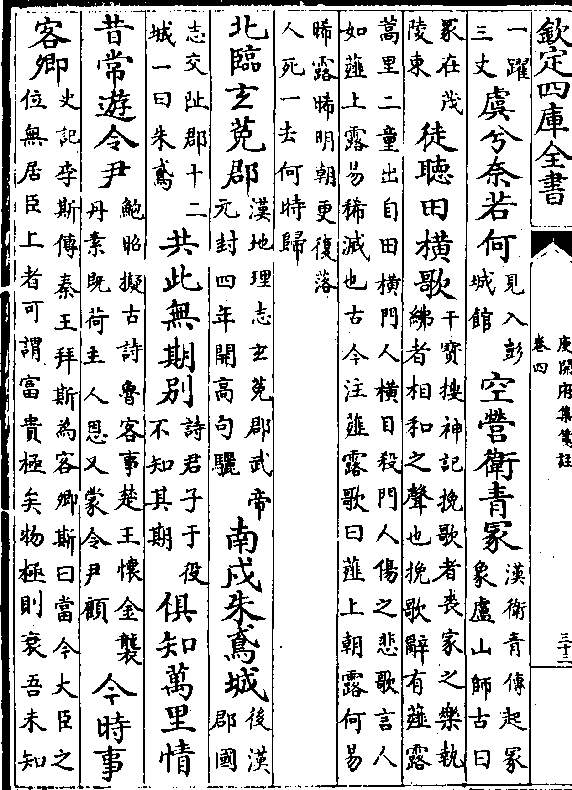 欽定四庫全書
庾開府集箋註
卷四
三十二
一躍三丈虞兮奈若何見入彭城館空營衛青冢漢衛青傳起冢象盧山師古曰
冢在茂陵東徒聽田橫歌干寶搜神記挽歌者喪家之樂執紼者相和之聲也挽歌辭有薤露
蒿里二章出自田橫門人橫自殺門人傷之悲歌言人如薤上露易稀滅也古今注薤露歌曰薤上朝露何易
晞露晞明朝更復落人死一去何時歸
北臨玄菟郡漢地理志玄菟郡武帝元封四年開高句驪南戍朱鳶城後漢郡國
志交阯郡十二城一曰朱鳶共此無期別詩君子于役不知其期俱知萬里情
昔常遊令尹鮑昭擬古詩魯客事楚王懷金襲丹素既荷主人恩又蒙令尹顧今時事
客卿史記李斯傳秦王拜斯為客卿斯曰當今大臣之位無居臣上者可謂富貴極矣物極則衰吾未知